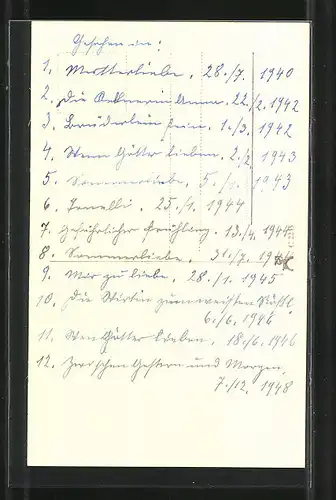 Gesehen in:
1. Mutterliebe. 28./7. 1940
2. Die Kellnerin Anna. 22./2. 1942
3. Brüderlein fein. 1./3. 1942
4. Wen Götter lieben. 2./2. 1943
5. Sommerliebe. 5./ 1943
6. 25./1. 1944
7. Gefährlicher Frühling. 13./4. 1944
8. Sommerliebe. 30./7. 1944
9. Mar zu liebe. 28./1. 1945
10. Die Wirtin zum weißen Rößl.
6./6. 1946
11. Wen Götter lieben. 18./6. 1946
12. Zwischen Gestern und Morgen.
7./12. 1948